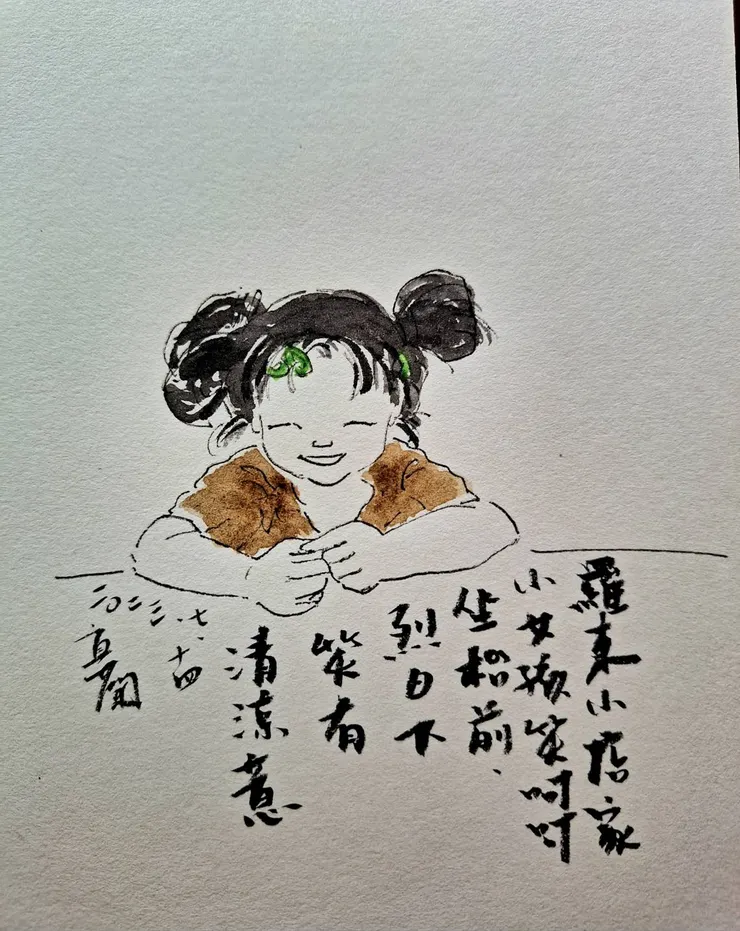 羅東小店家
小女孩笑呵呵
坐枱前、
烈日下
笑有
清涼意
二〇二三.七.十四